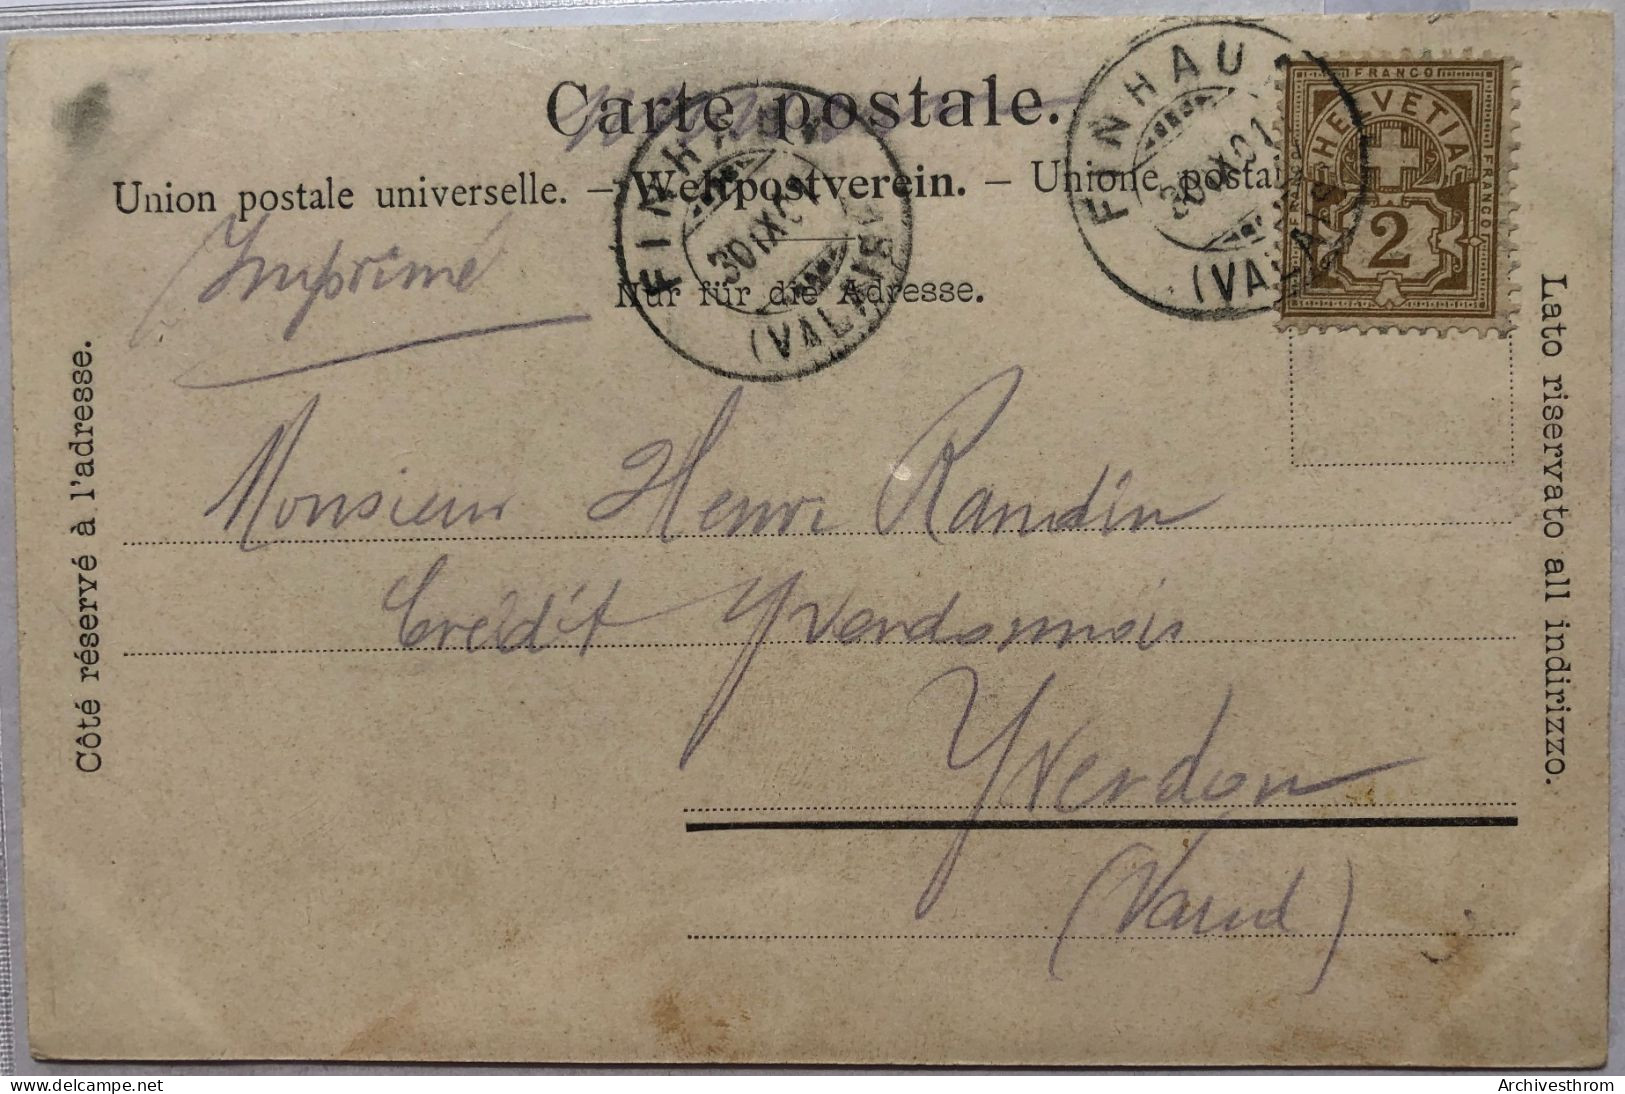 Carte postale.
Union postale universelle. – Weltpostverein. – Unione postale
Nur für die Adresse.
Imprimé
FINHAUT
30 IX 01
(VALAIS)
FINHAUT
30 IX 01
(VALAIS)
FRANCO
FRANCO
FRANCO
HELVETIA
2
Côté réservé à l'adresse.
Lato riservato all indirizzo.
Monsieur Henri Randin
Crédit Yverdonnois
Yverdon
(Vaud)
delcampe.net
Archivesthrom